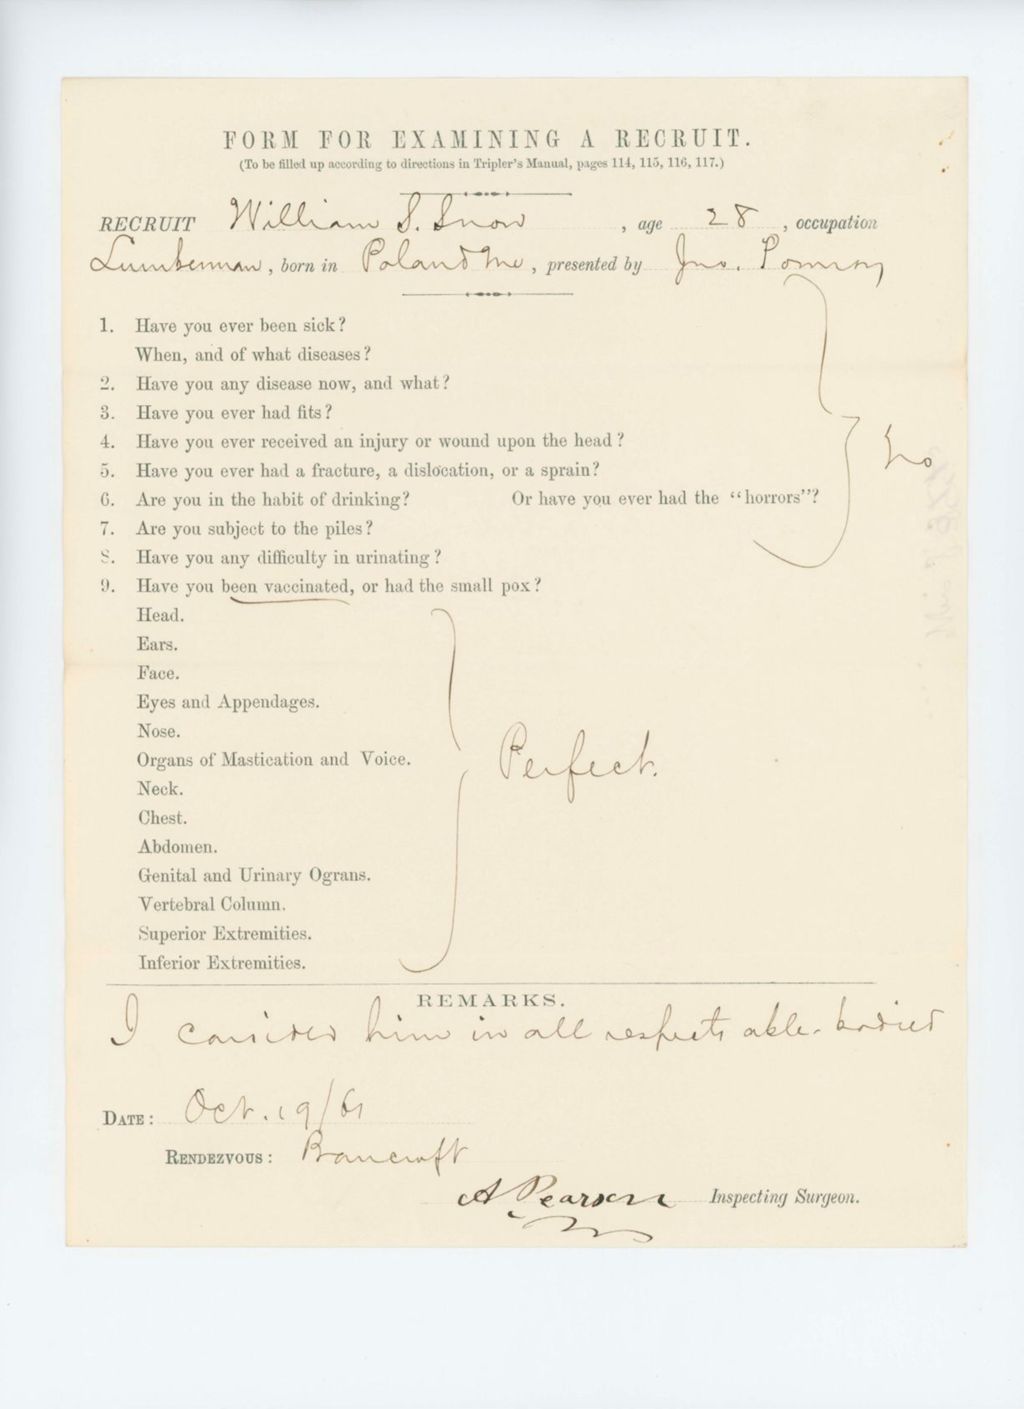 FORM FOR EXAMINING A RECRUIT.
(To be filled up according to directions in Tripler's Manual, pages 114, 115, 116, 117.)
RECRUIT William S. Snow, age 28, occupation
Lumberman, born in Poland Me, presented by Jno. Pomroy
1. Have you ever been sick?
When, and of what diseases?
2. Have you any disease now, and what?
3. Have you ever had fits?
4. Have you ever received an injury or wound upon the head?
5. Have you ever had a fracture, a dislocation, or a sprain?
No
6. Are you in the habit of drinking? Or have you ever had the "horrors"?
7. Are you subject to the piles?
8. Have you any difficulty in urinating?
9. Have you been vaccinated, or had the small pox?
Head.
Ears.
Face.
Eyes and Appendages.
Nose.
Organs of Mastication and Voice.
Perfect.
Neck.
Chest.
Abdomen.
Genital and Urinary Ograns.
Vertebral Column.
Superior Extremities.
Inferior Extremities.
REMARKS.
I consider him in all respects able-bodied
DATE: Oct. 19/61
RENDEZVOUS: Bancroft
A Pearson Inspecting Surgeon.